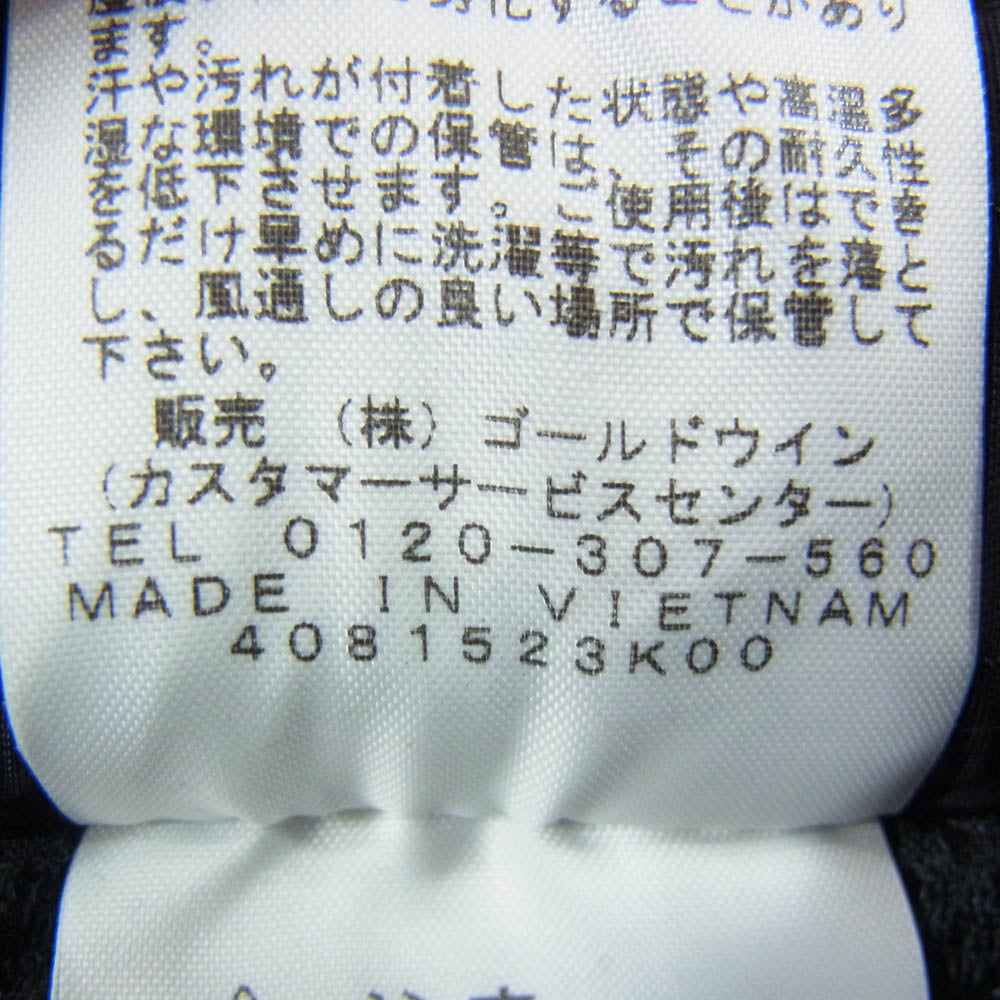 化することがあり
ます。
汗や汚れが付着した状態や高温多
湿な環境での保管は、その耐久性
を低下させます。ご使用後はでき
るだけ早めに洗濯等で汚れを落と
し、風通しの良い場所で保管して
下さい。
販売 (株)ゴールドウイン
(カスタマーサービスセンター)
TEL 0120-307-560
MADE IN VIETNAM
4081523K00